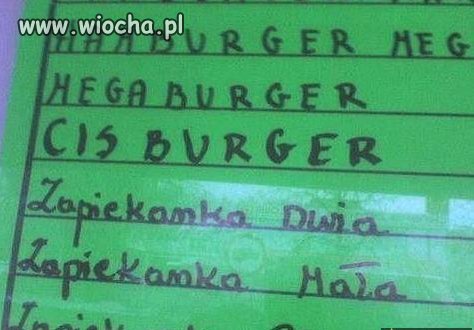 www.wiocha.pl
HAMBURGER MEG
MEGA BURGER
CIS BURGER
Zapiekanka Duża
Zapiekanka Mała